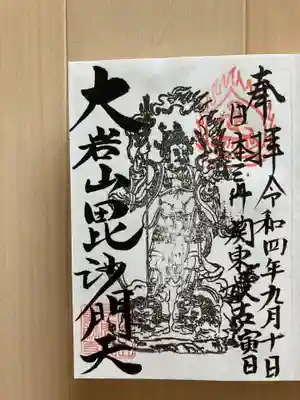 奉拝 令和四年九月十日
日本三 関東最古
大岩山毘沙門天